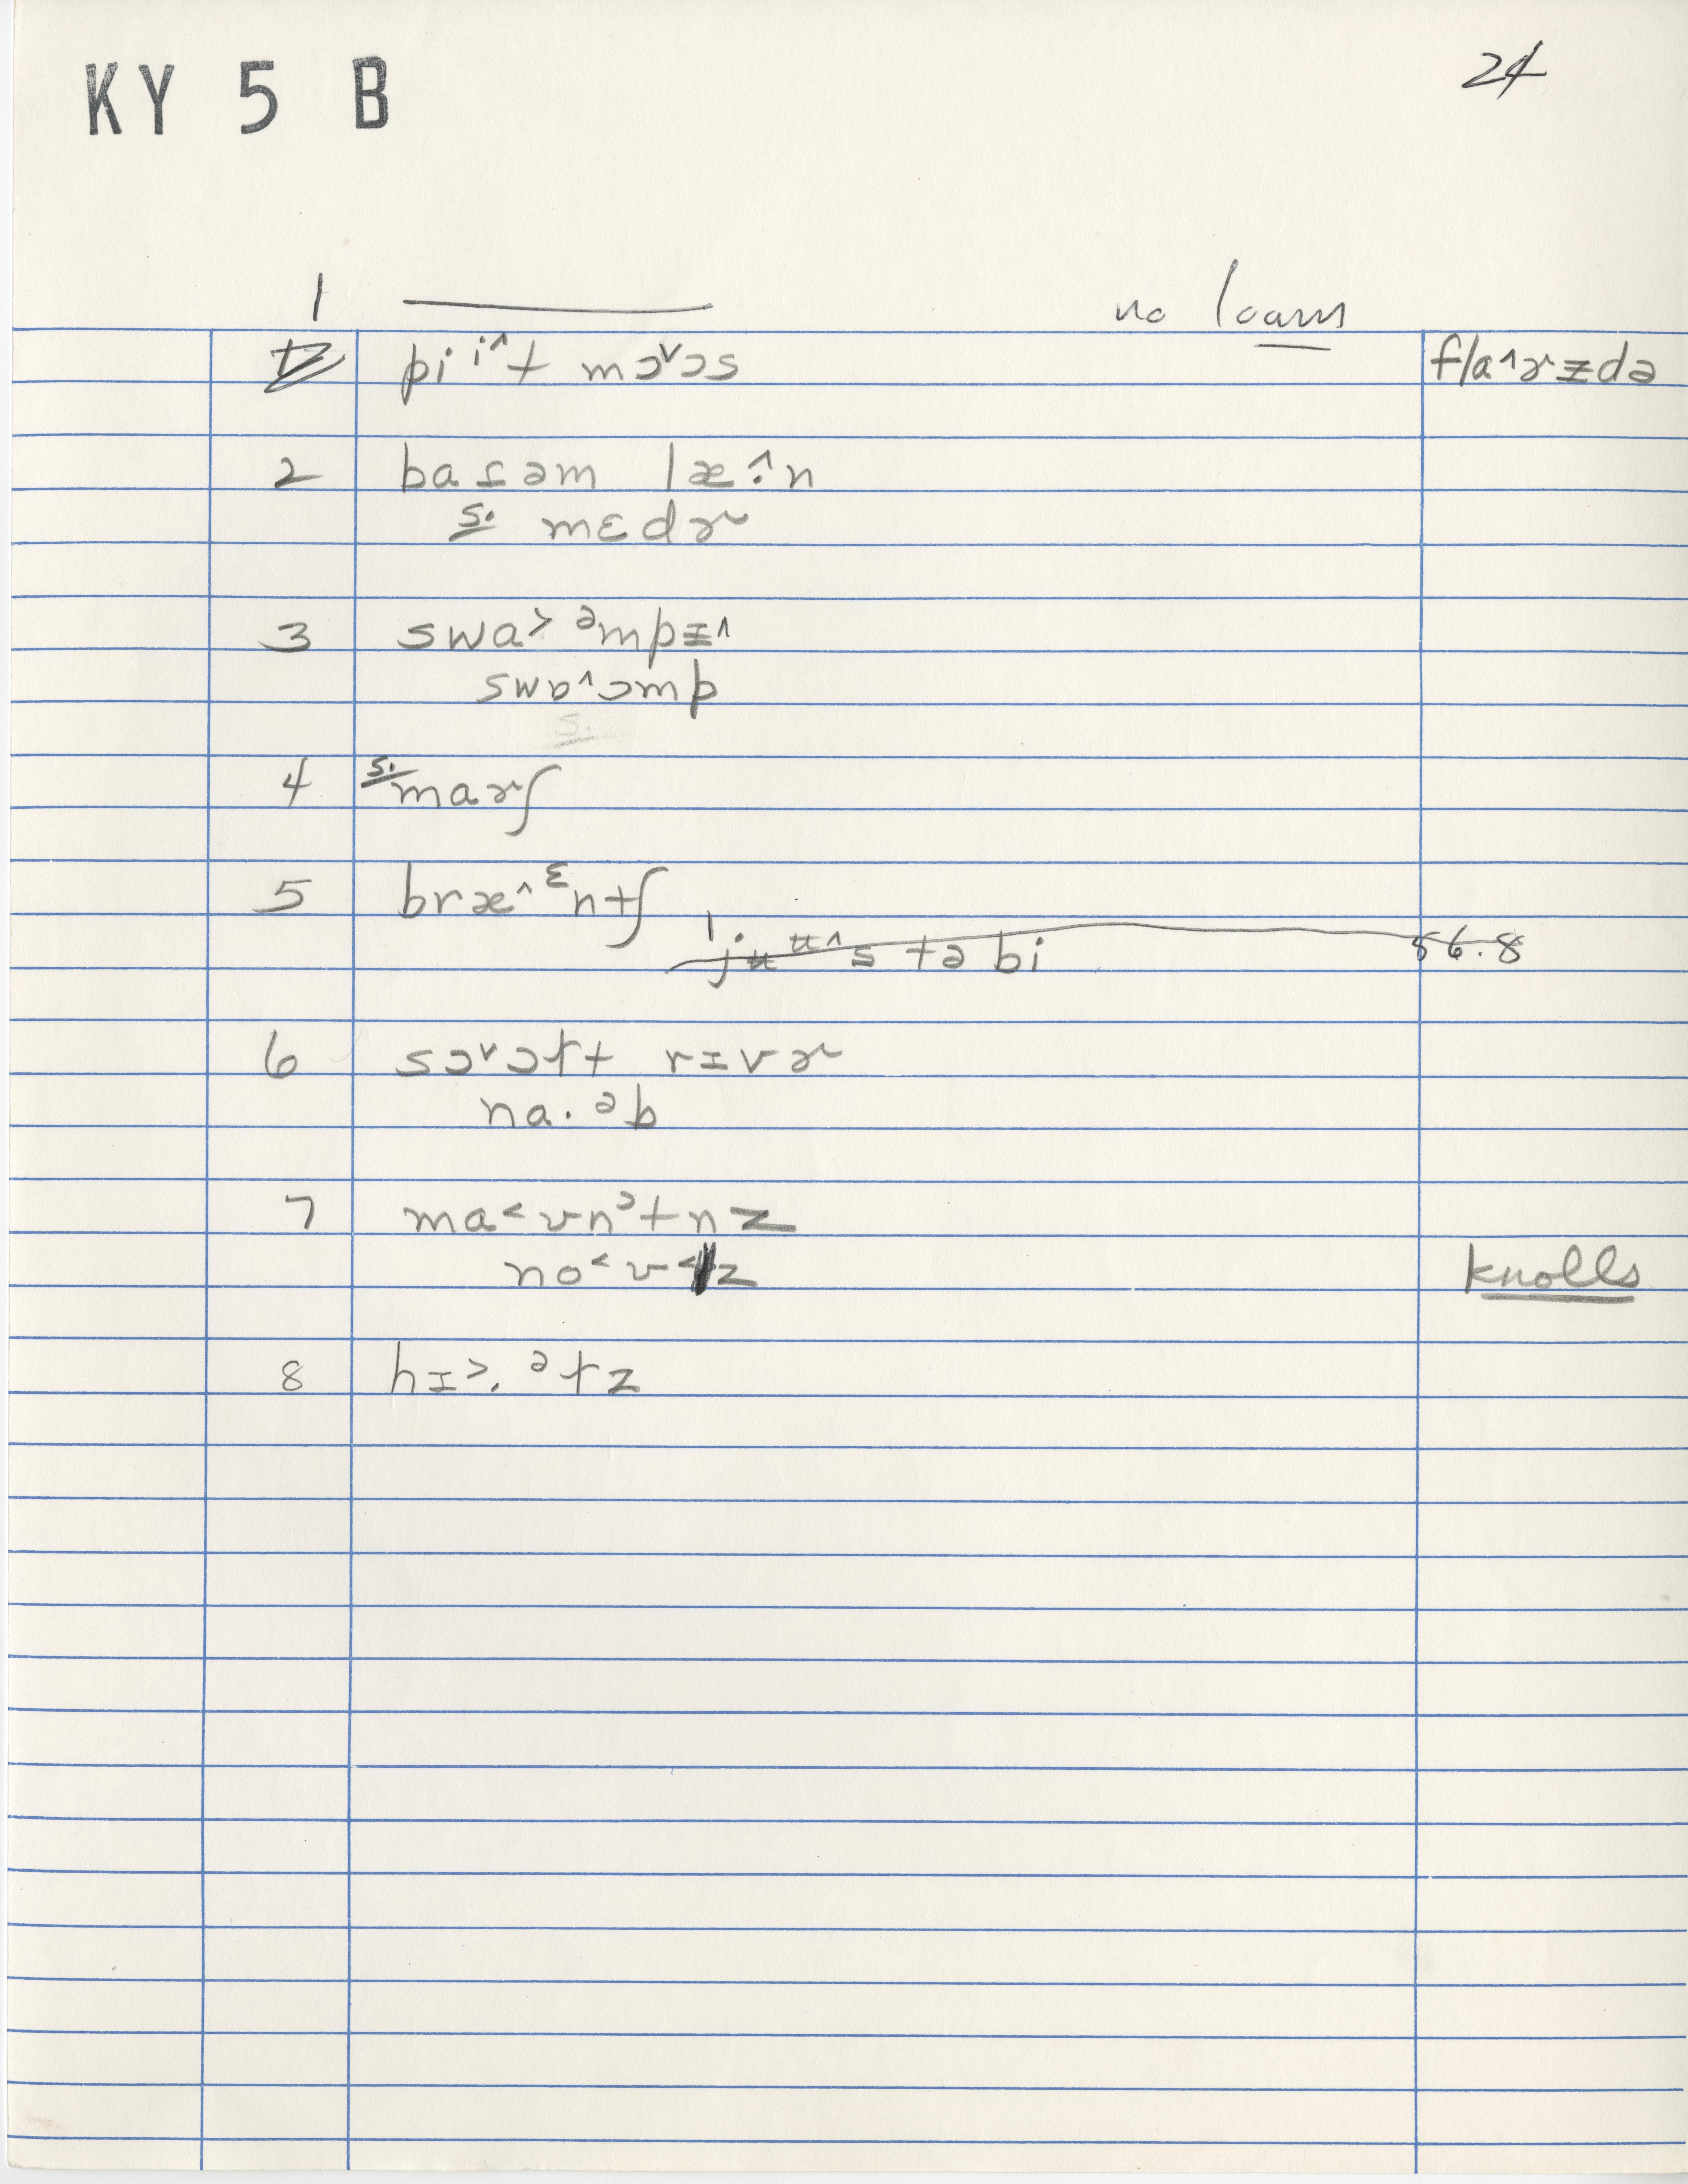 KY 5 B 24
1 ——— no loam
pi iˆt mɔ˅ɔs flaˆɚɨdə
2 baɪəm læ:ˆn
s. mɛdɚ
3 swa> əmpɨˆ
swɒˆɔmp
s.
4 s. maɚʃ
5 bræˆ ɛntʃ
ˈjʉʉˆs tə bi 56.8
6 sɔ˅ɔɫt rɪvɚ
na. əb
7 ma<ʊnʔtnz
no<ʊ<z knolls
8 hɪ>. əɫz